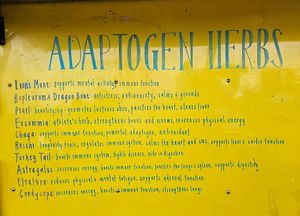 ADAPTOGEN HERBS
Lion's Mane: supports mental activity, immune function
Bupleurum & Dragon Bone: antistress, antianxiety, calms & grounds
Pearl: beautifying - promotes lustrous skin, pacifies the heart, clears liver
Eucommia: athlete's herb, strengthens bones and sinews, increases physical energy
Chaga: supports immune function, powerful adaptogen, antioxidant
Reishi: longevity tonic, regulates immune system, calms the heart and qi, supports cardio function
Turkey Tail: boosts immune system, fights disease, aids in digestion
Astragalus: increases energy, boosts immune function, supports digestivity
Eleuthro: reduces physical & mental fatigue, supports adrenal function
Cordyceps: increases energy, boosts immune function, strengthens lungs